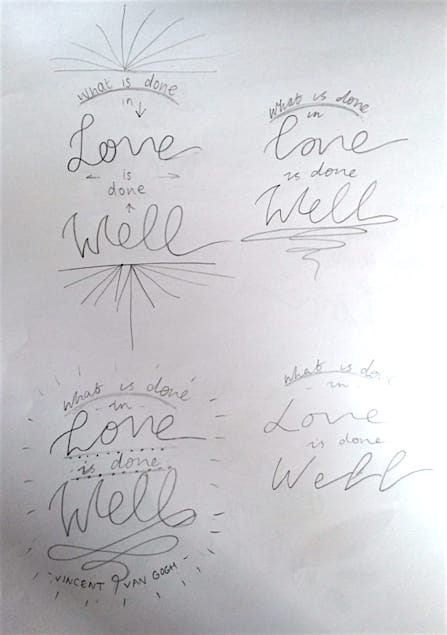 What is done
in
Love
is
done
Well
what is done
in
love
is done
Well
what is done
in
Love
is done
Well
VINCENT VAN GOGH
what is done
in
Love
is done
Well